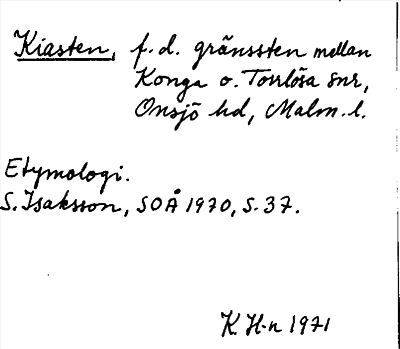 Kiasten, f.d. gränssten mellan
Konga o. Torrlösa snr,
Onsjö hd, Malm. l.
Etymologi.
S. Isaksson, SOÅ 1970, s. 37.
K. H-n 1971